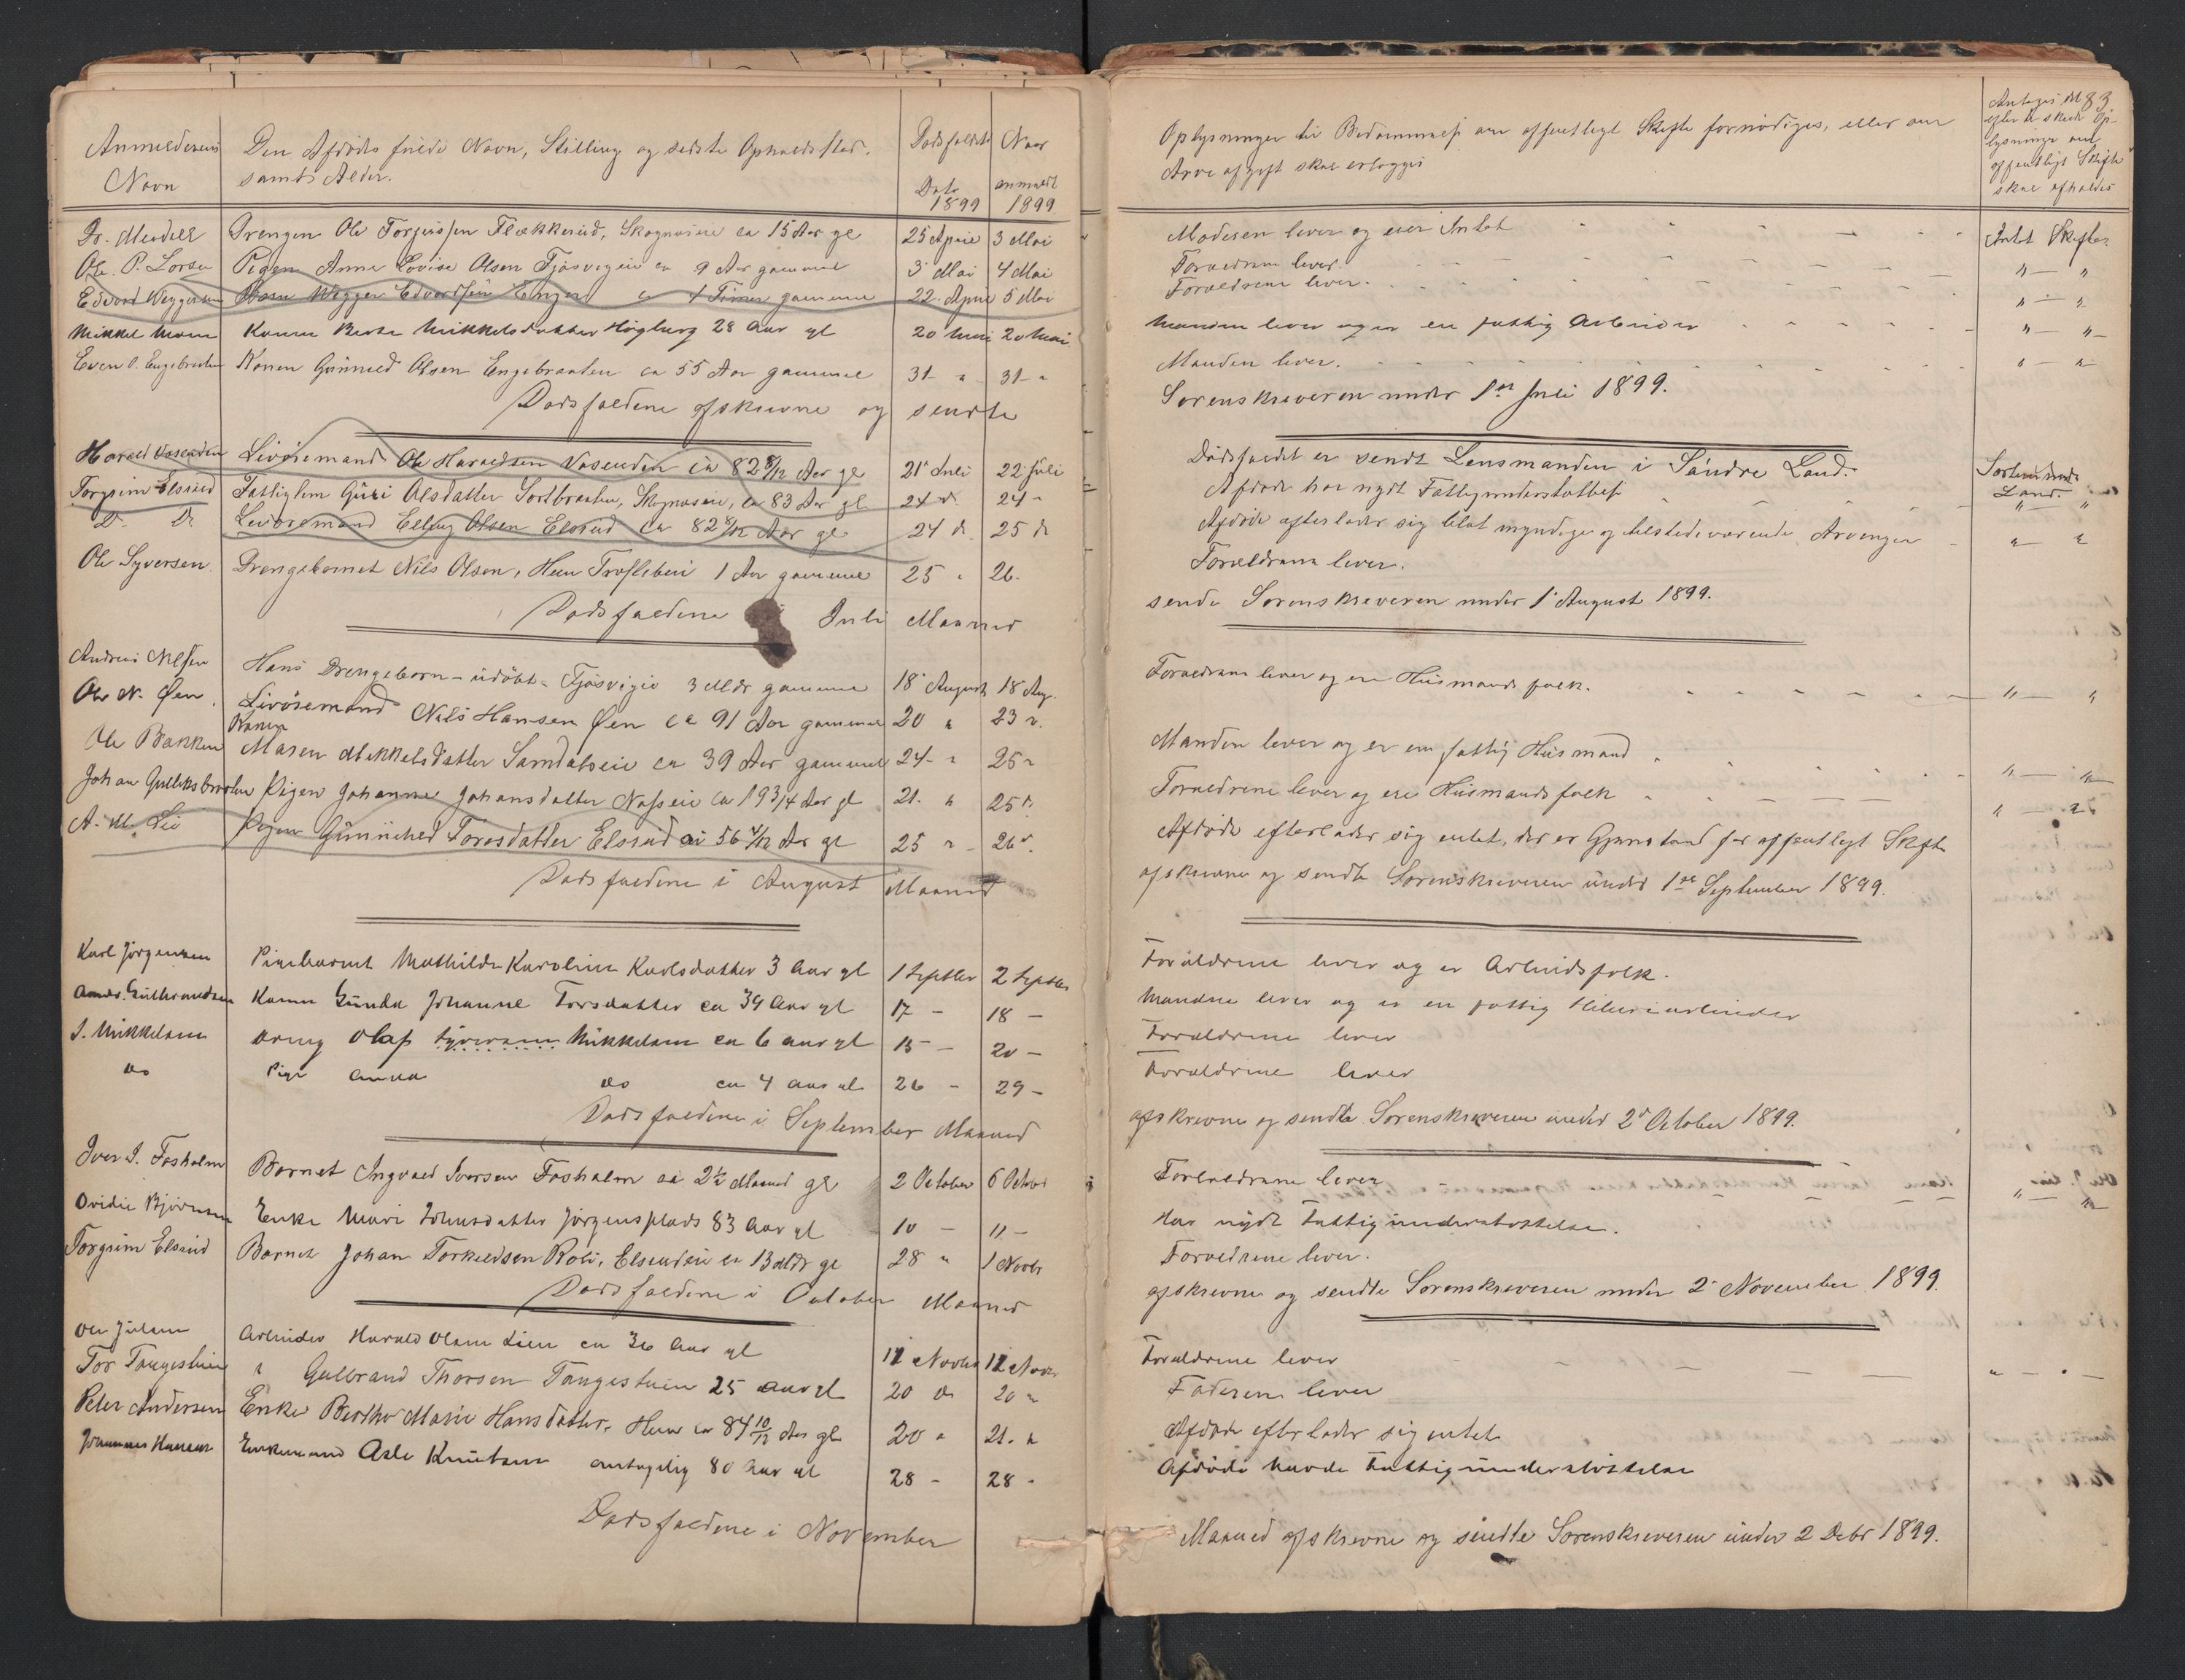 Anmelderens Navn
Den Afdødes fulde Navn, Stilling og sidste Opholdssted,
samt Alder.
Dødsfaldets Dato 1899
Naar anmeldt 1899
Dr. Ole Torgersen Skognæseie ca 15 Aar gl 25 April 3 Mai
Ole P. Larsen Pigen Anne Lovise Olsen Fjøsvigeie ca 9 Aar gammel 3 Mai 4 Mai
Edvard Weggersen Barn Wegger Edvardsen Enger ca 1 Time gammel 22 April 5 Mai
Mikkel Moen Konen Berte Mikkelsdatter Høgberg 28 Aar gl 20 Mai 20 Mai
Even O. Engebraaten Konen Gunnild Olsen Engebraaten ca 55 Aar gammel 31 " 31 "
Dødsfaldene afskrevne og sendte
Harald Vasenden Livøremand Ole Haraldsen Vasenden ca 82 8/12 Aar gl 21 Juli 22 Juli
Torgrim Elsrud Fattiglem Guri Olsdatter Sortbraaten, ca 83 Aar gl 24 d. 24 "
Do Do Livøremand Elling Olsen Elsrud ca 82 8/12 Aar gl 24 d. 25 d
Ole Syversen Drengebarnet Nils Olsen, Hem 1 Aar gammel 25 " 26.
Dødsfaldene i Juli Maaned
Andreas Nilsen Hans Drengebarn - udøbt - Fjøsvigeie 3 Mdr gammel 18 August 18 Aug.
Ole N. Øen Livøremand Nils Hansen Øen ca 91 Aar gammel 20 " 23 "
Konen
Ole Bakken Maren Mikkelsdatter Samdalseie ca 39 Aar gammel 24 " 25 "
Johan Gulliksbraaten Pigen Johanne Johansdatter Næsseie ca 19 3/4 Aar gl 21. " 25 "
A. M. Lie Pigen Gunnhild Toresdatter Elsrud ca 56 Aar gl 25 " 26 "
Dødsfaldene i August Maaned
Karl Jørgensen Pigebarnet Mathilde Karoline Karlsdatter 3 Aar gl 1 Septbr 2 Septbr
Gulbrandsen Konen Gunda Johanne Torsdatter ca 39 Aar gl 17 - 18 -
S. Mikkelsen Dreng Olaf Syversen Mikkelsen ca 6 Aar gl 15 - 20 -
do Pige Anna do ca 4 Aar gl 26 - 29 -
Dødsfaldene i September Maaned
Iver I. Fosholm Barnet Ingvald Iversen Fosholm ca 2 1/2 Maaned gl 2 October 6 Octobr
Ovidie Bjørnsen Enke Mari Johnsdatter Jørgensplads 83 Aar gl 10 - 11 -
Torgrim Elsrud Barnet Johan Torkeldsen Roli, Elsrudeie ca 13 Mdr gl 28 " 1 Novbr
Dødsfaldene i October Maaned
Ole Julsen Arbeider Harald Olsen Lien ca 36 Aar gl 11 Novbr 12 Novbr
Tor Tangestuen " Gulbrand Thorsen Tangestuen 25 Aar gl 20 do 20 "
Peter Andersen Enke Berthe Marie Hansdatter, Hem ca 84 10/12 Aar gl 20 " 21. "
Johannes Hansen Enkemand Asle Knutsen antagelig 80 Aar gl 28 - 28 -
Dødsfaldene i November
Oplysninger til Bedømmelse om offentligt Skifte fornødiges, eller om
Arveafgift skal erlægges
83
Antages det efter de skeede Oplysninger om offentligt Skifte skal afholdes
Moderen lever og eier Intet Intet Skifte
Forældrene lever. " — "
Forældrene lever. " — "
Manden lever og er en fattig Arbeider " — "
Manden lever. " — "
Sorenskriveren under 1ste Juli 1899.
Dødsfaldet er sendt Lensmanden i Søndre Land.
Afdøde har nydt Fattigunderstøttelse
Afdøde efterlader sig blot myndige og tilstedeværende Arvinger
Forældrene lever.
sendt Sorenskriveren under 1 August 1899.
Forældrene lever og ere Husmandsfolk. " — "
Manden lever og er en fattig Husmand " — "
Forældrene lever og ere Husmandsfolk " — "
Afdøde efterlader sig intet, der er Gjenstand for offentlegt Skifte
afskrevne og sendte Sorenskriveren under 1ste September 1899.
Forældrene lever og er Arbeidsfolk.
Manden lever og er en fattig
Forældrene lever
Forældrene lever
afskrevne og sendte Sorenskriveren under 2d October 1899.
Forældrene lever
Har nydt Fattigunderstøttelse.
Forældrene lever.
afskrevne og sendte Sorenskriveren under 2 November 1899.
Forældrene lever
Faderen lever
Afdøde efterlader sig intet
Afdøde havde Fattigunderstøttelse
Maaned afskrevne og sendte Sorenskriveren under 2 Debr 1899.